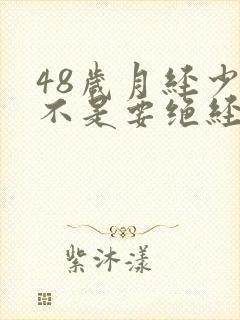 48歲月經少
不是要绝經
紫沐漾